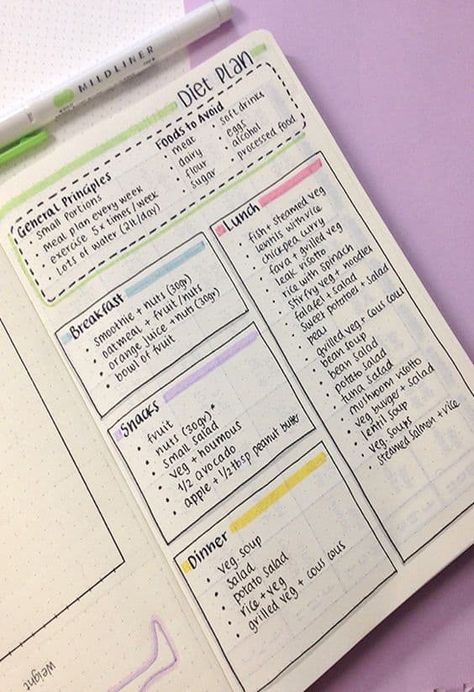 MILDLINER
Diet Plan
General Principles
• small portions
• meal plan every week
• exercise 5x times/week
• Lots of water (2lt/day)
Foods to Avoid
• meat
• dairy
• flour
• sugar
• soft drinks
• eggs
• alcohol
• processed food
Breakfast
• smoothie + nuts (30gr)
• oatmeal + fruit/nuts
• orange juice + nuts (30gr)
• bowl of fruit
Snacks
• fruit
• nuts (30gr)*
• small salad
• veg + houmous
• 1/2 avocado
• apple + 1/2 tbsp peanut butter
Dinner
• veg soup
• salad
• potato salad
• rice + veg
• grilled veg + cous cous
Lunch
• fish + steamed veg
• lentils with rice
• chickpea curry
• fava + grilled veg
• leak risotto
• rice with spinach
• stirfry veg + noodles
• falafel + salad
• sweet potatoes + salad
• peas
• grilled veg + cous cous
• bean soup
• bean salad
• potato salad
• tuna salad
• mushroom risotto
• veg burger + salad
• lentil soup
• veg soups
• steamed salmon + rice
weight